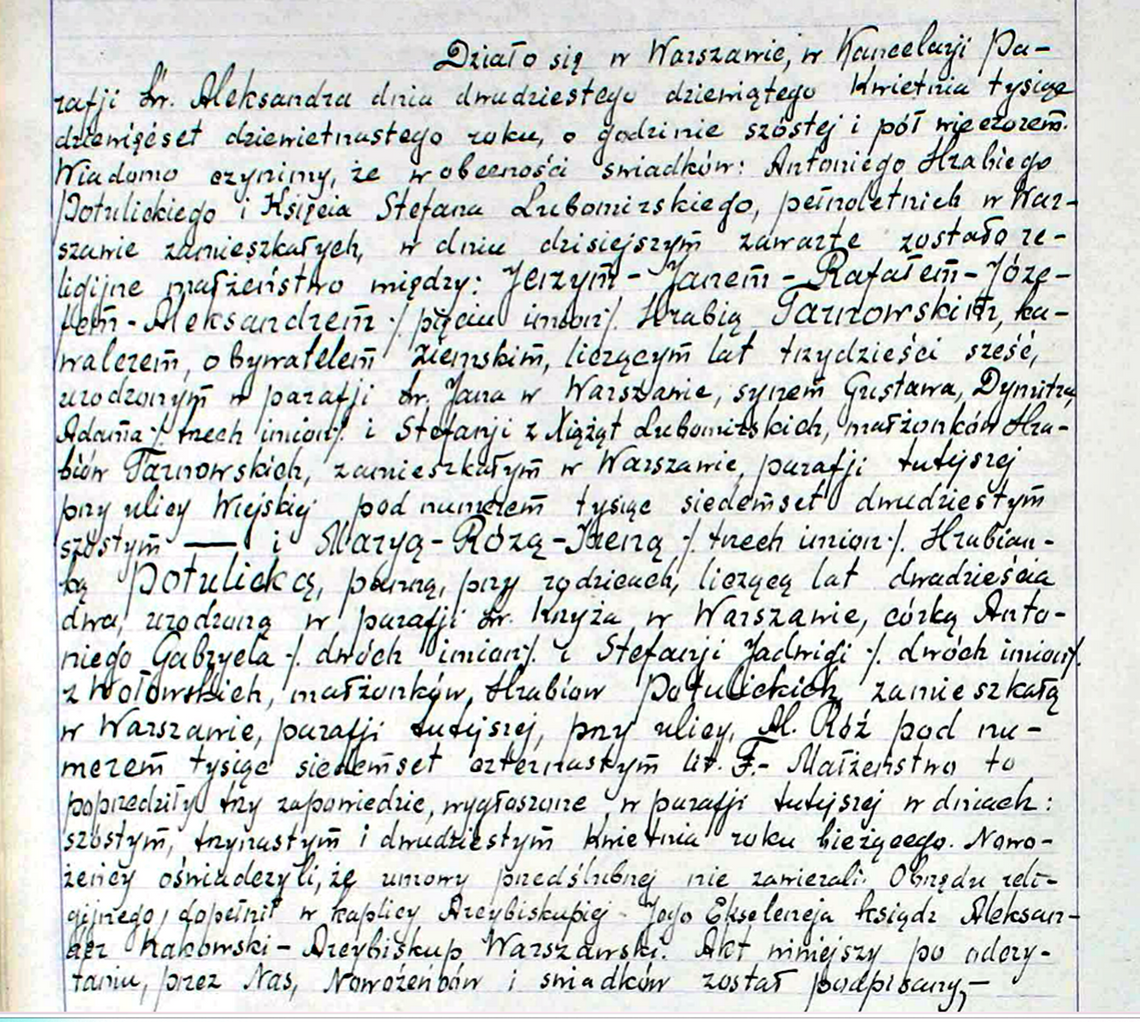 Działo się w Warszawie, w Kancelarji Pa-
rafji Św. Aleksandra dnia dwudziestego dziewiątego Kwietnia tysiąc
dziewięćset dziewietnastego roku, o godzinie szóstej i pół wieczorem.
Wiadomo czynimy, że w obecności świadków: Antoniego Hrabiego
Potulickiego i Księcia Stefana Lubomirskiego, pełnoletnich w War-
szawie zamieszkałych, w dniu dzisiejszym zawarte zostało re-
ligijne małżeństwo między: Jerzym-Janem-Rafałem-Józe-
fem-Aleksandrem ·/. pięciu imion ·/. Hrabią Tarnowskim, ka-
walerem, obywatelem ziemskim, liczącym lat trzydzieści sześć,
urodzonym w parafji Św. Jana w Warszawie, synem Gustawa, Dymitra,
Adama ·/. trzech imion ·/. i Stefanji z Xiążąt Lubomirskich, małżonków Hra-
biów Tarnowskich, zamieszkałym w Warszawie, parafji tutejszej
przy ulicy Wiejskiej pod numerem tysiąc siedemset dwudziestym
szóstym — i Maryą-Różą-Ireną ·/. trzech imion ·/. Hrabian-
ką Potulicką, panną, przy rodzicach, liczącą lat dwadzieścia
dwa, urodzoną w parafji Św. Krzyża w Warszawie, córką Anto-
niego Gabryela ·/. dwóch imion ·/. i Stefanji Jadwigi ·/. dwóch imion ·/.
z Wołowskich, małżonków, Hrabiow Potulickich, zamieszkałą
w Warszawie, parafji tutejszej, przy ulicy, Al. Róż pod nu-
merem tysiąc siedemset czternastym lit. F.- Małżeństwo to
poprzedziły trzy zapowiedzie, wygłoszone w parafji tutejszej w dniach:
szóstym, trzynastym i dwudziestym Kwietnia roku bieżącego. Nowo-
żeńcy oświadczyli, że umowy przedślubnej nie zawierali. Obrzędu reli-
gijnego, dopełnił w kaplicy Arcybiskupiej Jego Ekselencja ksiądz Aleksan-
der Kakowski - Arcybiskup Warszawski. Akt niniejszy po odczy-
taniu, przez Nas, Nowożeńców i świadków został podpisany,-